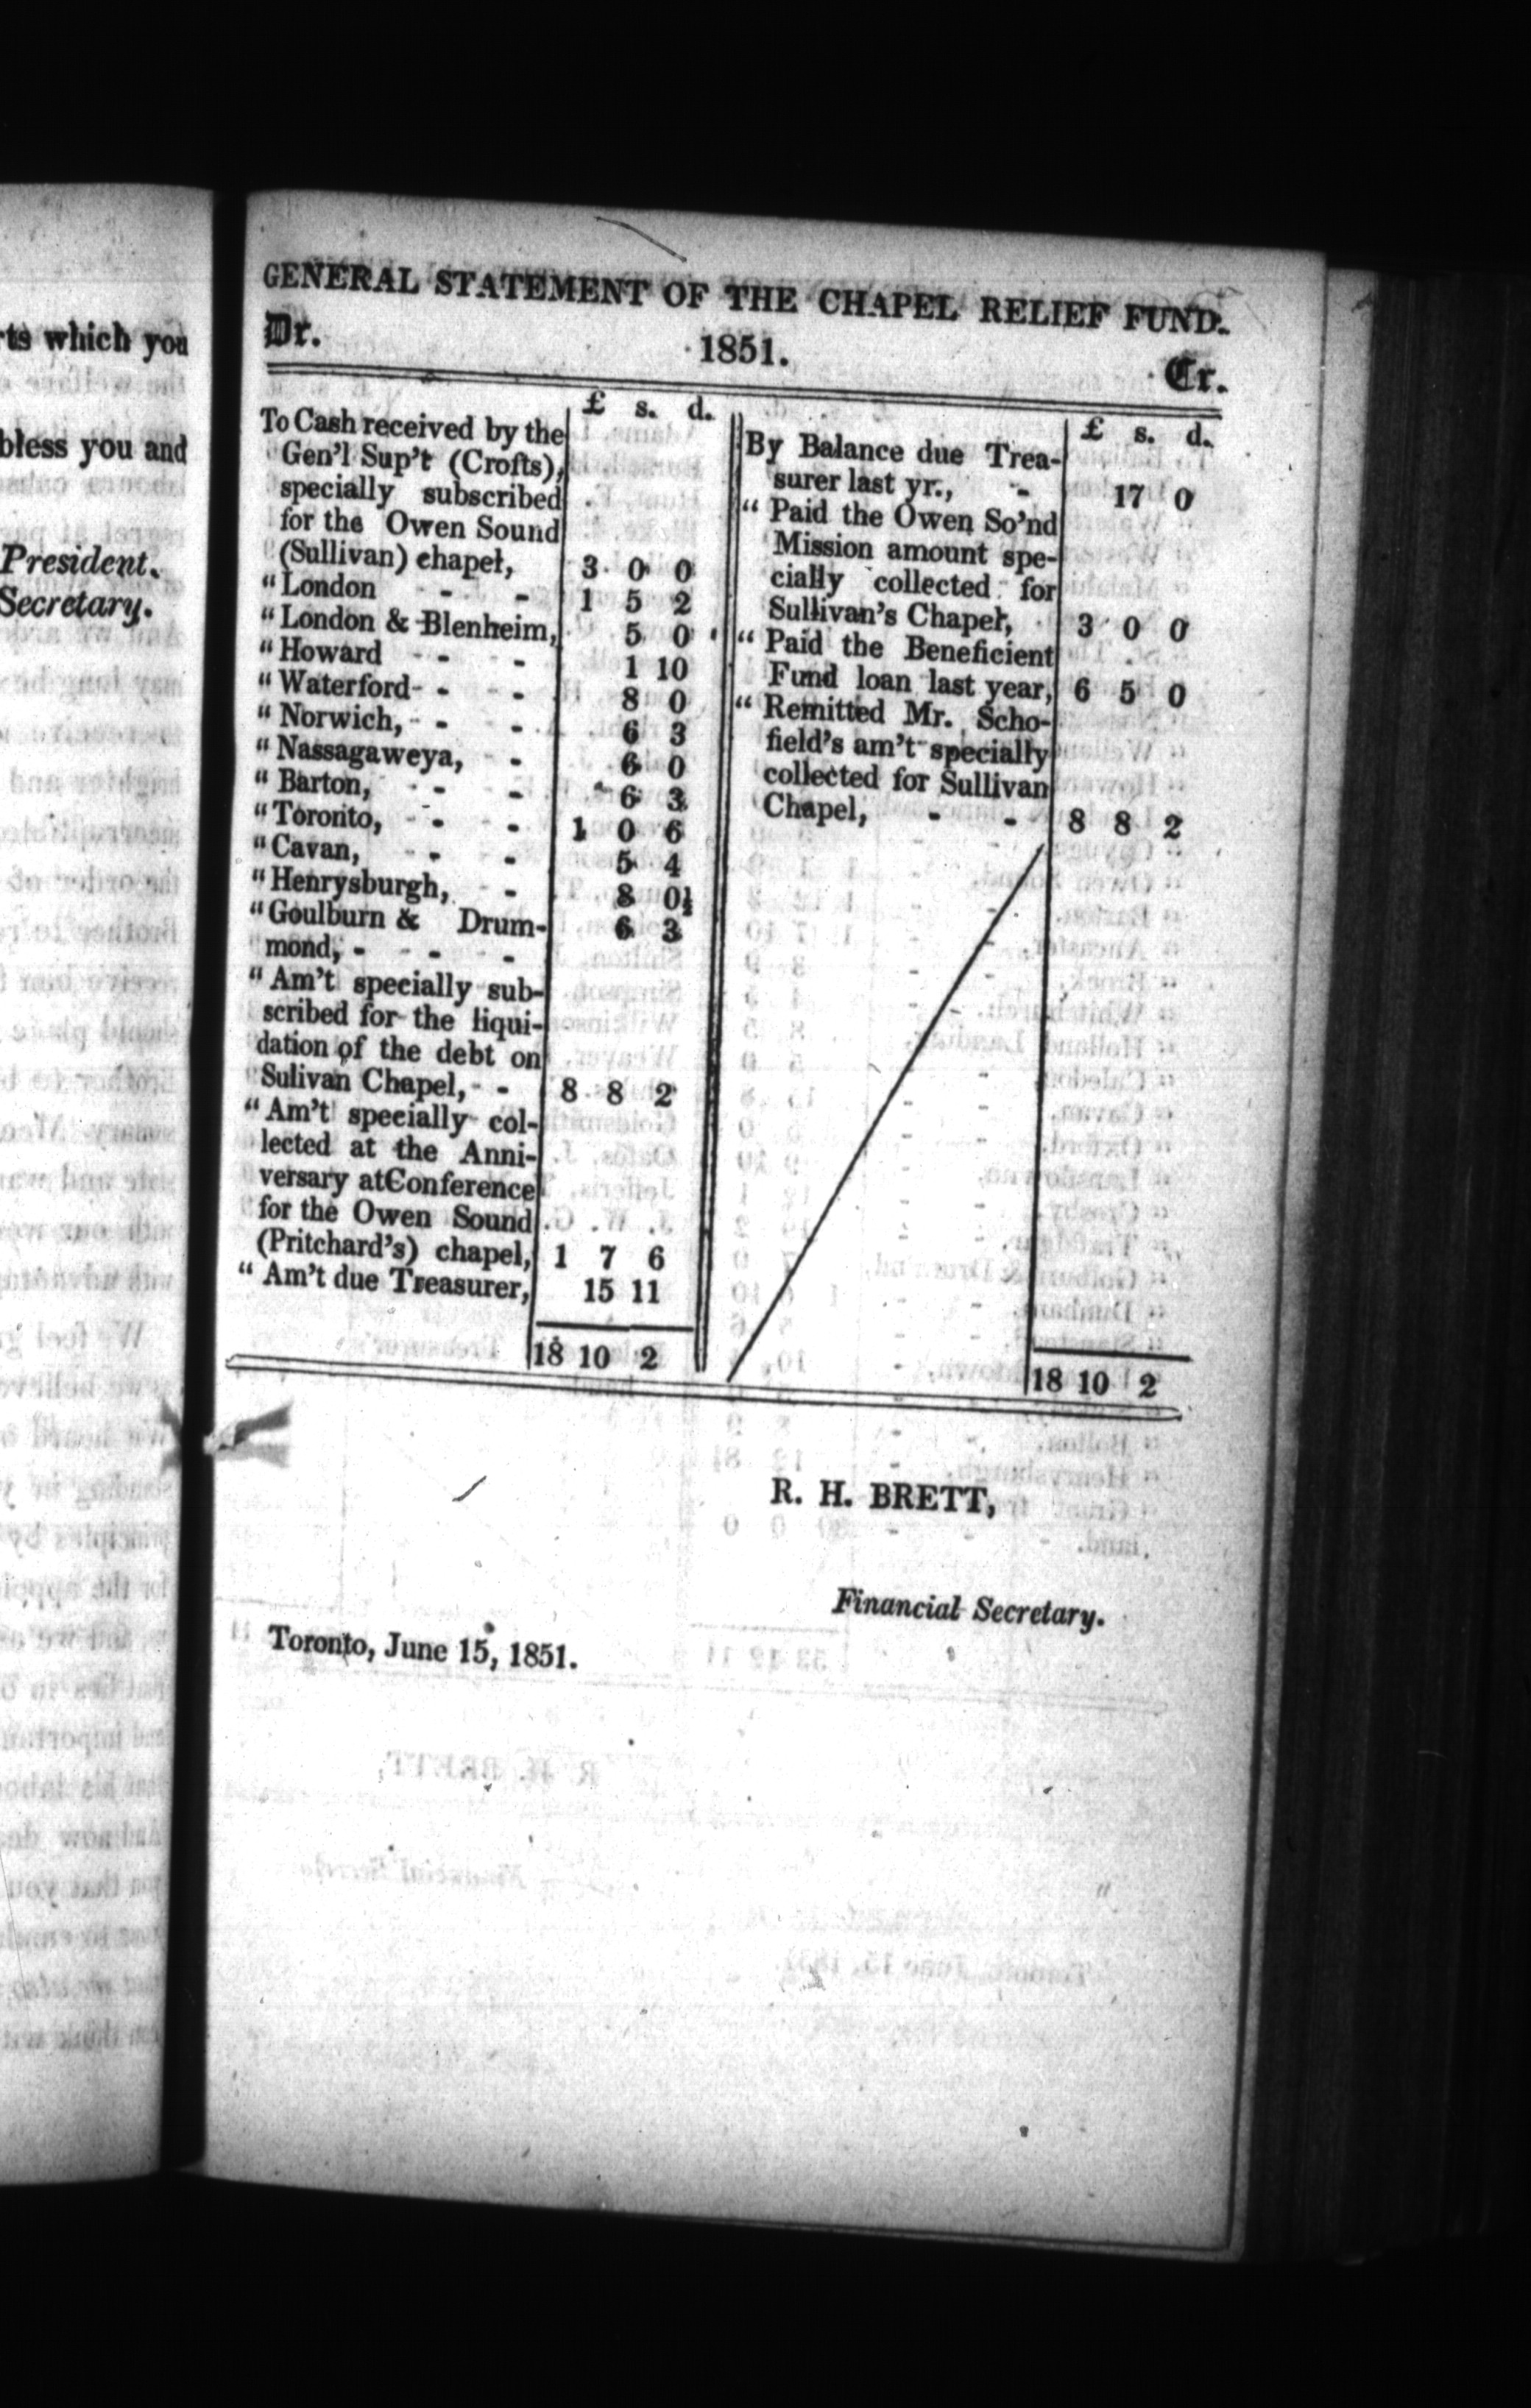 rts which you
bless you and
President.
Secretary.
GENERAL STATEMENT OF THE CHAPEL RELIEF FUND.
Dr. 1851. Cr.
£ s. d.
To Cash received by the
Gen'l Sup't (Crofts),
specially subscribed
for the Owen Sound
(Sullivan) chapel, 3 0 0
" London - - 1 5 2
" London & Blenheim, 5 0
" Howard - - 1 10
" Waterford - - 8 0
" Norwich, - - 6 3
" Nassagaweya, - 6 0
" Barton, - - 6 3
" Toronto, - - 1 0 6
" Cavan, - - 5 4
" Henrysburgh, - 8 0½
" Goulburn & Drum- 6 3
mond, - - -
" Am't specially sub-
scribed for the liqui-
dation of the debt on
Sulivan Chapel, - - 8 8 2
" Am't specially col-
lected at the Anni-
versary at Conference
for the Owen Sound
(Pritchard's) chapel, 1 7 6
" Am't due Treasurer, 15 11
18 10 2
£ s. d.
By Balance due Trea-
surer last yr., - 17 0
" Paid the Owen So'nd
Mission amount spe-
cially collected for
Sullivan's Chapel, 3 0 0
" Paid the Beneficient
Fund loan last year, 6 5 0
" Remitted Mr. Scho-
field's am't specially
collected for Sullivan
Chapel, - - 8 8 2
18 10 2
R. H. BRETT,
Financial Secretary.
Toronto, June 15, 1851.